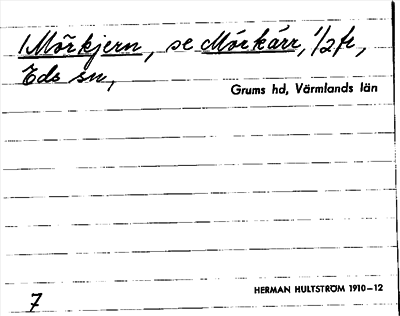 1 Mörkjern, se Mörkärr, 1/2 fr,
Eds sn,
Grums hd, Värmlands län
HERMAN HULTSTRÖM 1910–12
7